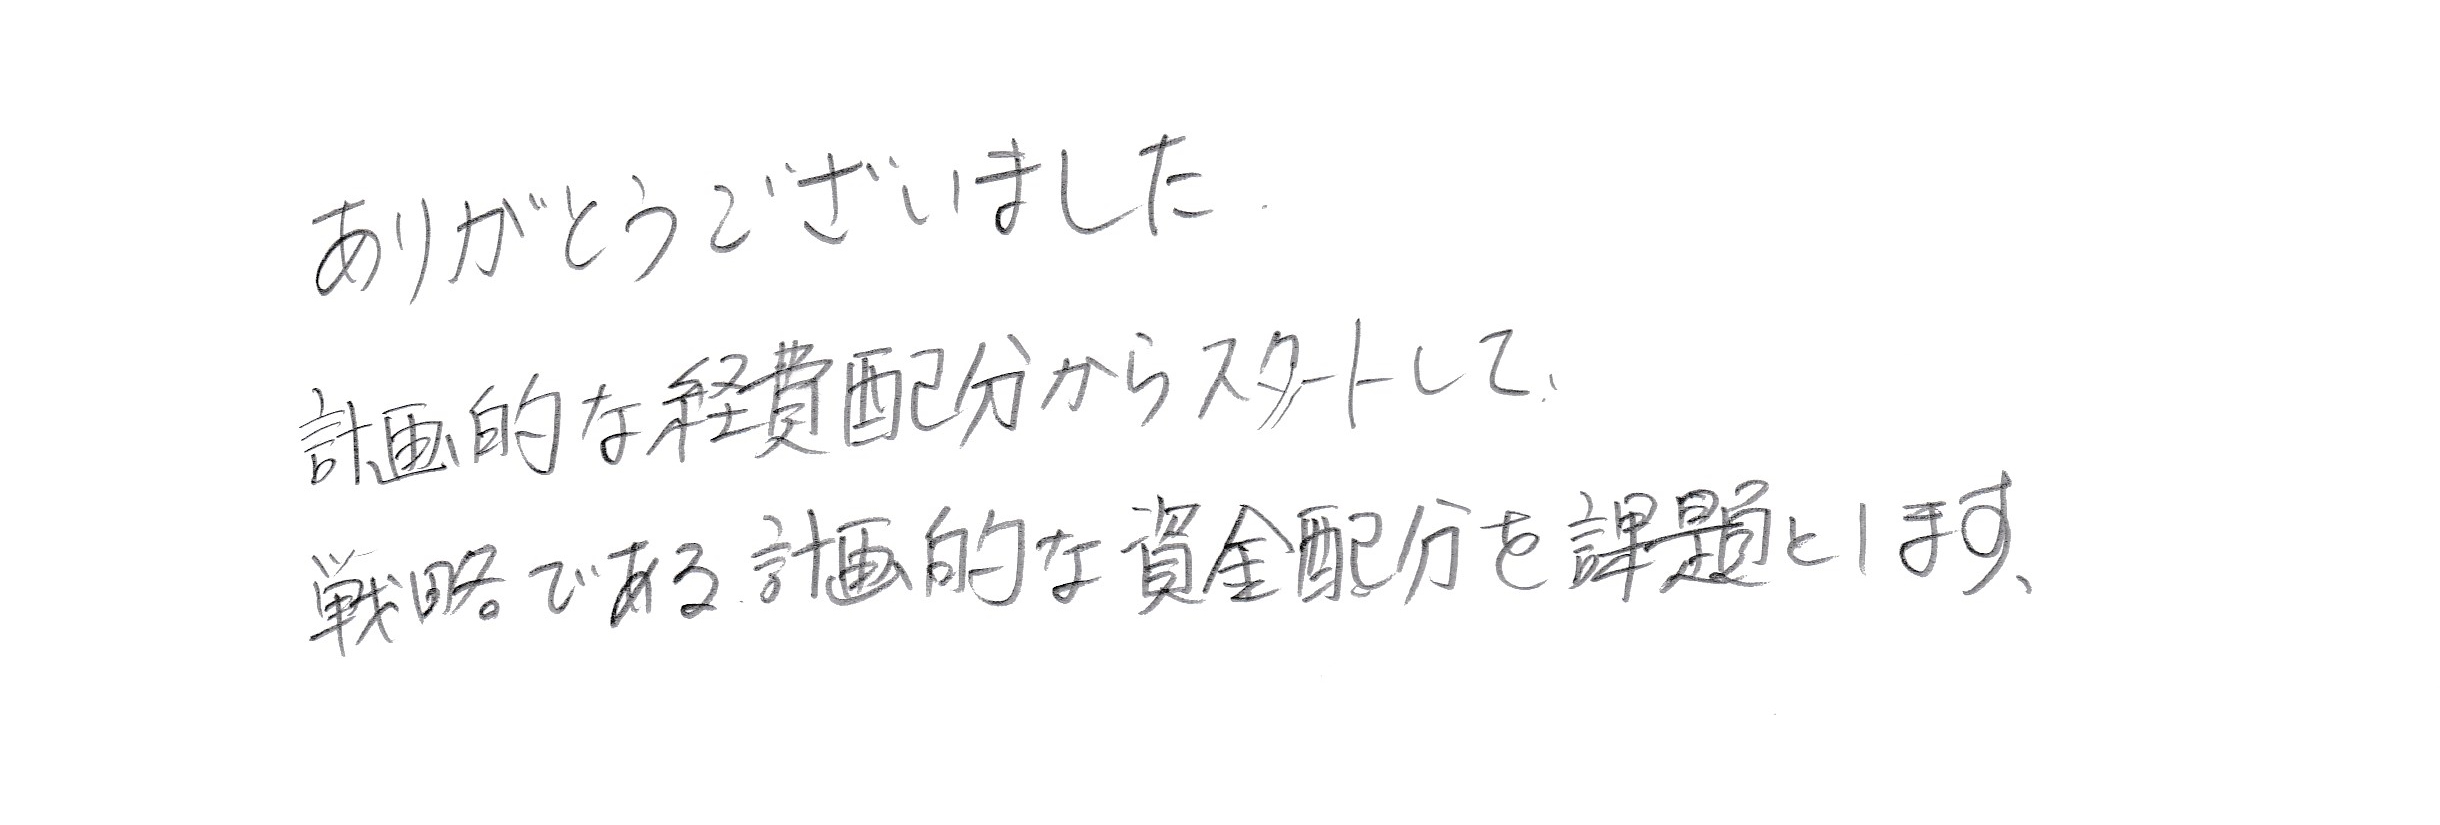 ありがとうございました.
計画的な経費配分からスタートして、
戦略である計画的な資金配分を課題とします、